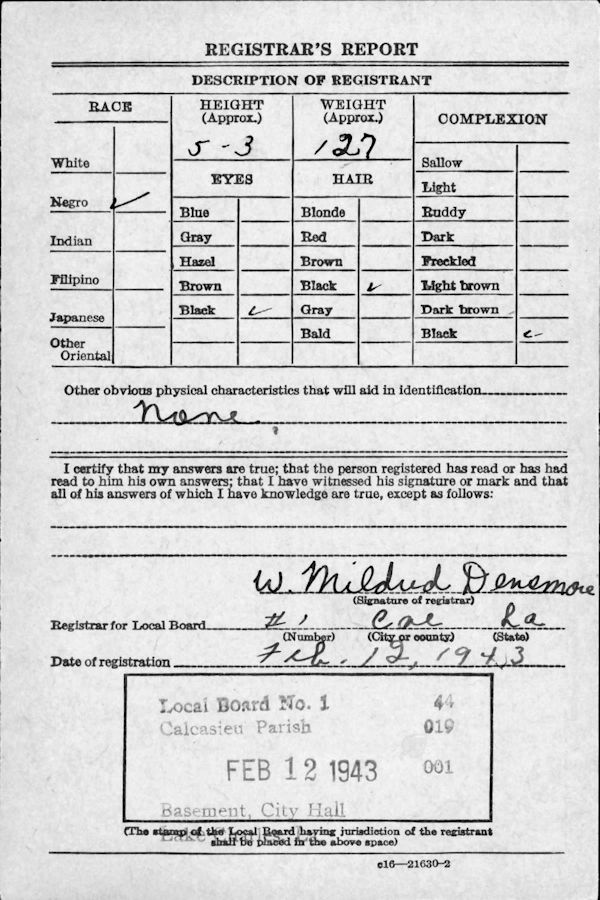 REGISTRAR'S REPORT
DESCRIPTION OF REGISTRANT
RACE
White
Negro ✓
Indian
Filipino
Japanese
Other
Oriental
HEIGHT
(Approx.)
5-3
WEIGHT
(Approx.)
127
EYES
Blue
Gray
Hazel
Brown
Black ✓
HAIR
Blonde
Red
Brown
Black ✓
Gray
Bald
COMPLEXION
Sallow
Light
Ruddy
Dark
Freckled
Light brown
Dark brown
Black ✓
Other obvious physical characteristics that will aid in identification
None
I certify that my answers are true; that the person registered has read or has had
read to him his own answers; that I have witnessed his signature or mark and that
all of his answers of which I have knowledge are true, except as follows:
W. Mildred Densmore
(Signature of registrar)
Registrar for Local Board #1 Cal La
(Number) (City or county) (State)
Date of registration Feb. 12, 1943
Local Board No. 1 44
Calcasieu Parish 019
FEB 12 1943 001
Basement, City Hall
Lake Charles, La.
(The stamp of the Local Board having jurisdiction of the registrant
shall be placed in the above space)
c16—21630-2